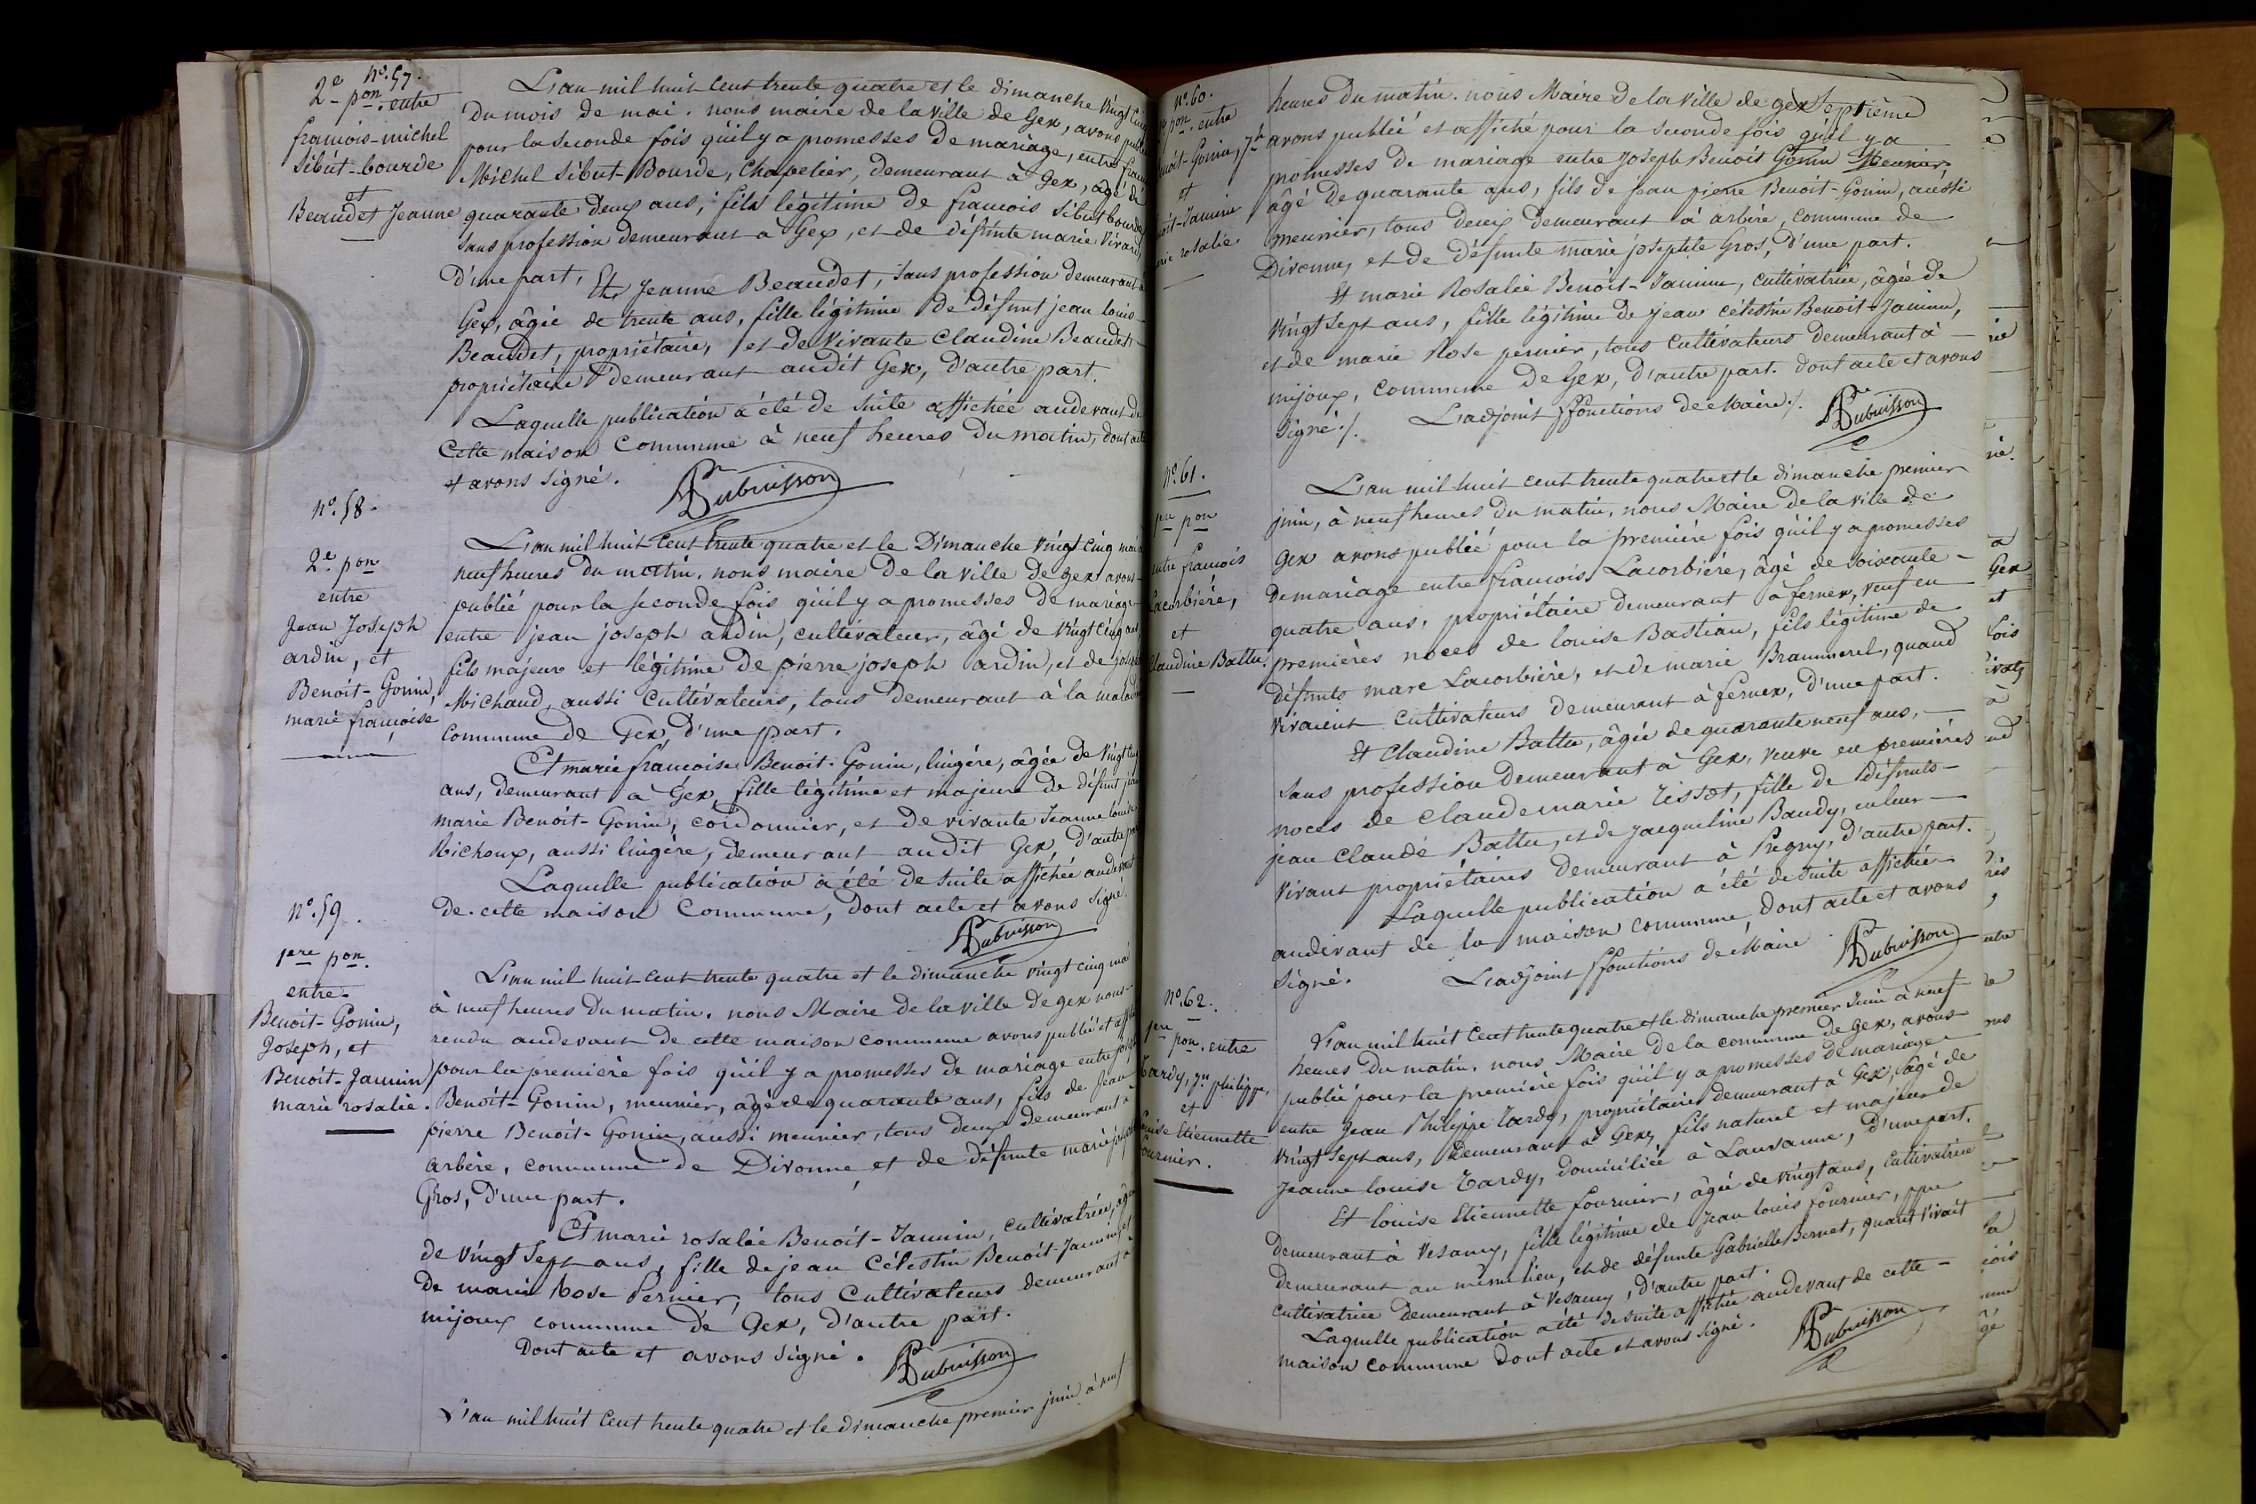 nº. 57.
2e pon. entre
françois-michel
Sibut-bourde
et
Beaudet Jeanne
L'an mil huit cent trente quatre et le dimanche vingt cinq
du mois de mai. nous maire de la ville de Gex, avons publié
pour la seconde fois qu'il y a promesses de mariage, entre
Michel Sibut-Bourde, Chapelier, demeurant à Gex, âgé de
quarante deux ans, fils légitime de francois Sibut bourde
sans profession demeurant à Gex, et de défunte marie
D'une part, Et Jeanne Beaudet, sans profession demeurant à
Gex, âgée de trente ans, fille légitime de défunt jean louis
Beaudet, propriétaire, et de vivante Claudine Beaudet
propriétaire demeurant audit Gex, d'autre part.
Laquelle publication a été de suite affichée audevant de
cette maison Commune à neuf heures du matin, dont acte
et avons signé. Dubuisson
nº. 58.
2e. pon
entre
Jean Joseph
ardin, et
Benoit-Gonin,
marie françoise
L'an mil huit Cent trente quatre et le Dimanche vingt cinq mai à
neuf heures du matin. nous maire de la ville de gex avons
publié pour la seconde fois qu'il y a promesses de mariage
entre jean joseph ardin, cultivateur, âgé de vingt cinq ans
fils majeur et légitime de pierre joseph ardin, et de
Michaud, aussi cultivateurs, tous demeurant à la
Commune de Gex, d'une part.
Et marie françoise Benoit-Gonin, lingère, âgée de vingt
ans, demeurant à Gex, fille légitime et majeure de défunt
marie Benoit-Gonin, cordonnier, et de vivante Jeanne louise
Richoux, aussi lingère, demeurant audit Gex, d'autre part
Laquelle publication a été de suite affichée audevant
de cette maison Commune, dont acte et avons signé.
Dubuisson
nº. 59.
1ere pon.
entre
Benoit-Gonin,
Joseph, et
Benoit-Jannin
marie rosalie.
L'an mil huit cent trente quatre et le dimanche vingt cinq mai
à neuf heures du matin. nous Maire de la ville de gex nous
rendu audevant de cette maison commune avons publié et affiché
pour la première fois qu'il y a promesses de mariage entre joseph
Benoit-Gonin, meunier, âgé de quarante ans, fils de Jean
pierre Benoit-Gonin, aussi meunier, tous deux demeurant à
arbère, commune de Divonne, et de défunte marie
Gros, D'une part.
Et marie rosalie Benoit-Jannin, cultivatrice, âgée
de vingt sept ans, fille de jean Célestin Benoit-Jannin, et
de marie Rose Pernier, tous Cultivateurs demeurant à
mijoux commune de Gex, d'autre part.
Dont acte et avons signé. Dubuisson
L'an mil huit Cent trente quatre et le dimanche premier juin à neuf
nº. 60.
pon. entre
Benoit-Gonin, Jh
et
Benoit-Jannin
marie rosalie
heures du matin. nous Maire de la ville de gex
avons publié et affiché pour la seconde fois qu'il y a
promesses de mariage entre Joseph Benoit Gonin Meunier,
âgé de quarante ans, fils de jean pierre Benoit-Gonin, aussi
meunier, tous deux demeurant à arbère, commune de
Divonne, et de défunte marie josephte Gros, D'une part.
Et marie Rosalie Benoit-Jannin, cultivatrice, âgée de
vingt sept ans, fille légitime de jean célestin Benoit-Jannin,
et de marie Rose pernier, tous Cultivateurs demeurant à
mijoux, commune de Gex, d'autre part. dont acte et avons
signé./. L'adjoint ffonctions de Maire./. Dubuisson
nº. 61.
1ere pon
entre francois
Lacorbière,
et
Claudine Battu.
L'an mil huit cent trente quatre et le dimanche premier
juin, à neuf heures du matin, nous Maire de la ville de
Gex avons publié pour la première fois qu'il y a promesses
de mariage entre francois Lacorbière, âgé de soixante
quatre ans, propriétaire demeurant à fernex, veuf en
premières noces de louise Bastian, fils légitime de
défunts marc Lacorbière, et de marie Braunnerel, quand
vivaient cultivateurs demeurant à fernex, d'une part.
Et Claudine Battu, âgée de quarante neuf ans,
sans profession demeurant à Gex, veuve en premières
noces de Claude marie Tissot, fille de défunts
jean Claude Battu, et de Jacqueline Baudy, en leur
vivant propriétaires demeurant à Pregny, d'autre part.
Laquelle publication a été de suite affichée
audevant de la maison commune, dont acte et avons
signé. L'adjoint ffonctions de Maire Dubuisson
nº. 62.
1ere pon. entre
Tardy, jn philippe,
et
Louise Etiennette
fournier.
L'an mil huit Cent trente quatre et le dimanche premier Juin à neuf
heures du matin. nous Maire de la commune de gex, avons
publié pour la première fois qu'il y a promesses de mariage
entre Jean Philippe Tardy, propriétaire demeurant à Gex, âgé de
vingt sept ans, demeurant à Gex, fils naturel et majeur de
Jeanne louise Tardy, domiciliée à Lausanne, d'une part.
Et louise Etiennette fournier, âgée de vingt ans, cultivatrice
demeurant à Vesancy, fille légitime de Jean louis fournier, ppre
demeurant au même lieu, et de défunte Gabrielle Bernet, quand vivait
cultivatrice demeurant à Vesancy, d'autre part.
Laquelle publication a été de suite affichée audevant de cette
maison commune dont acte et avons signé. Dubuisson